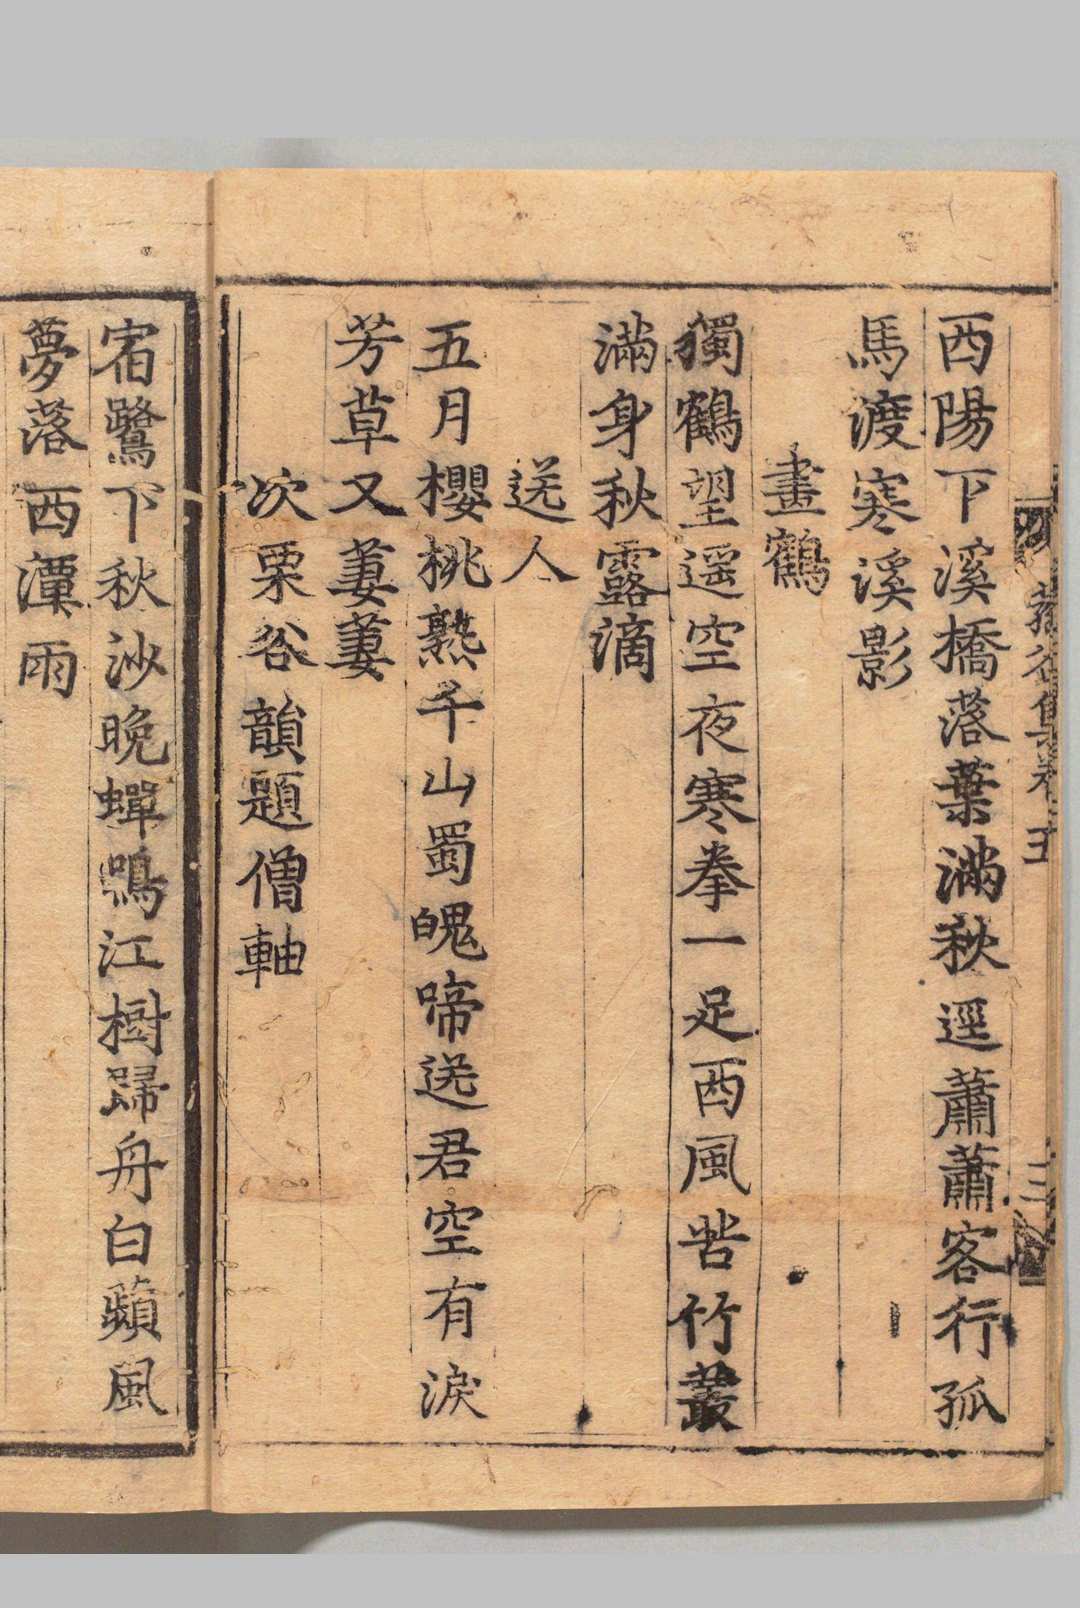 蓀谷集卷之五
三
西陽下溪橋落葉滿秋逕蕭蕭客行孤
馬渡寒溪影
畫鶴
獨鶴望遥空夜寒拳一足西風苦竹叢
滿身秋露滴
送人
五月櫻桃熟千山蜀魄啼送君空有淚
芳草又萋萋
次栗谷韻題僧軸
宿鷺下秋沙晚蟬鳴江樹歸舟白蘋風
夢落西潭雨